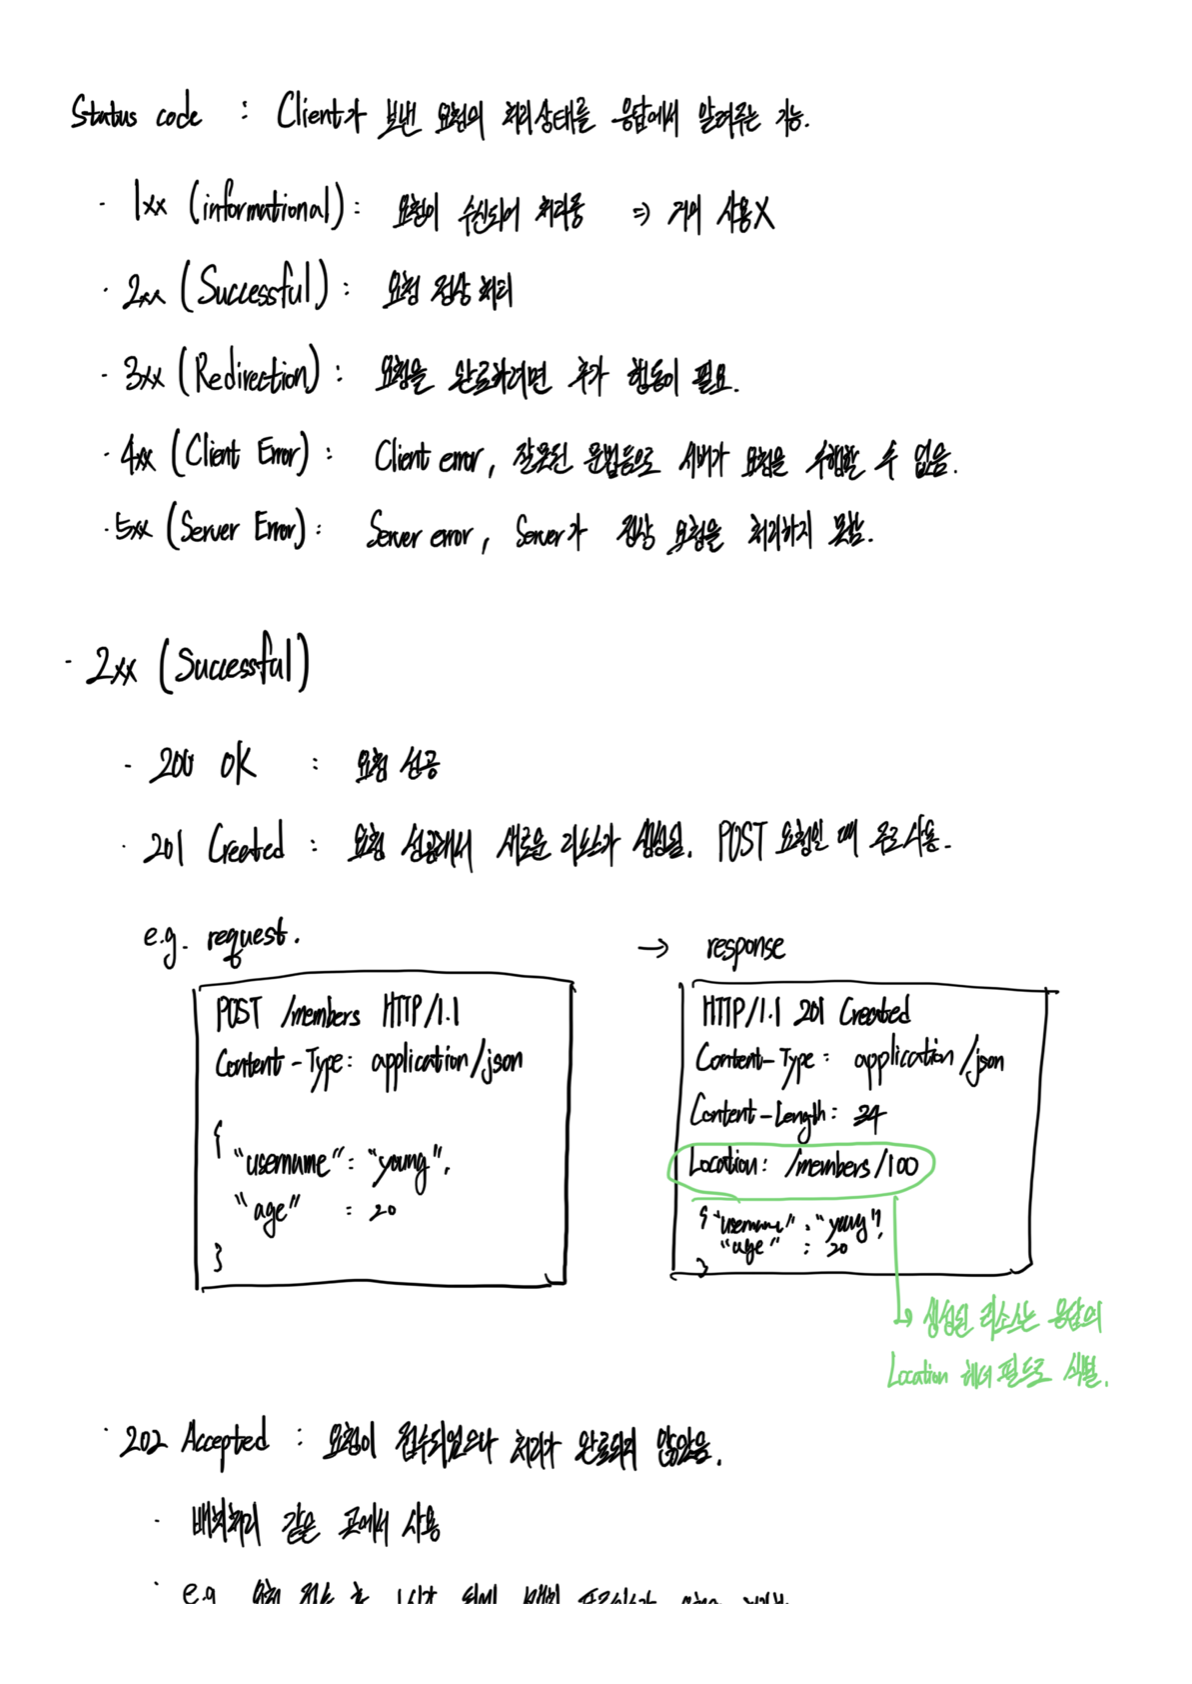 Status code : Client가 보낸 요청의 처리상태를 응답에서 알려주는 기능.
· 1xx (informational) : 요청이 수신되어 처리중 => 거의 사용X
· 2xx (Successful) : 요청 정상 처리
· 3xx (Redirection) : 요청을 완료하려면 추가 행동이 필요.
· 4xx (Client Error) : Client error, 잘못된 문법등으로 서버가 요청을 수행할 수 없음.
· 5xx (Server Error) : Server error, Server가 정상 요청을 처리하지 못함.
· 2xx (Successful)
· 200 OK : 요청 성공
· 201 Created : 요청 성공해서 새로운 리소스가 생성됨. POST 요청일 때 주로 사용.
e.g. request. → response
POST /members HTTP/1.1
Content-Type: application/json
{
"username": "young",
"age" : 20
}
HTTP/1.1 201 Created
Content-Type: application/json
Content-Length: 34
Location: /members/100
{ "username" : "young",
"age" : 20
}
↳ 생성된 리소스는 응답의
Location 헤더 필드로 식별.
· 202 Accepted : 요청이 접수되었으나 처리가 완료되지 않았음.
· 배치처리 같은 곳에서 사용
· e.g. 요청 접수 후 1시간 뒤에 배치 프로세스가 요청을